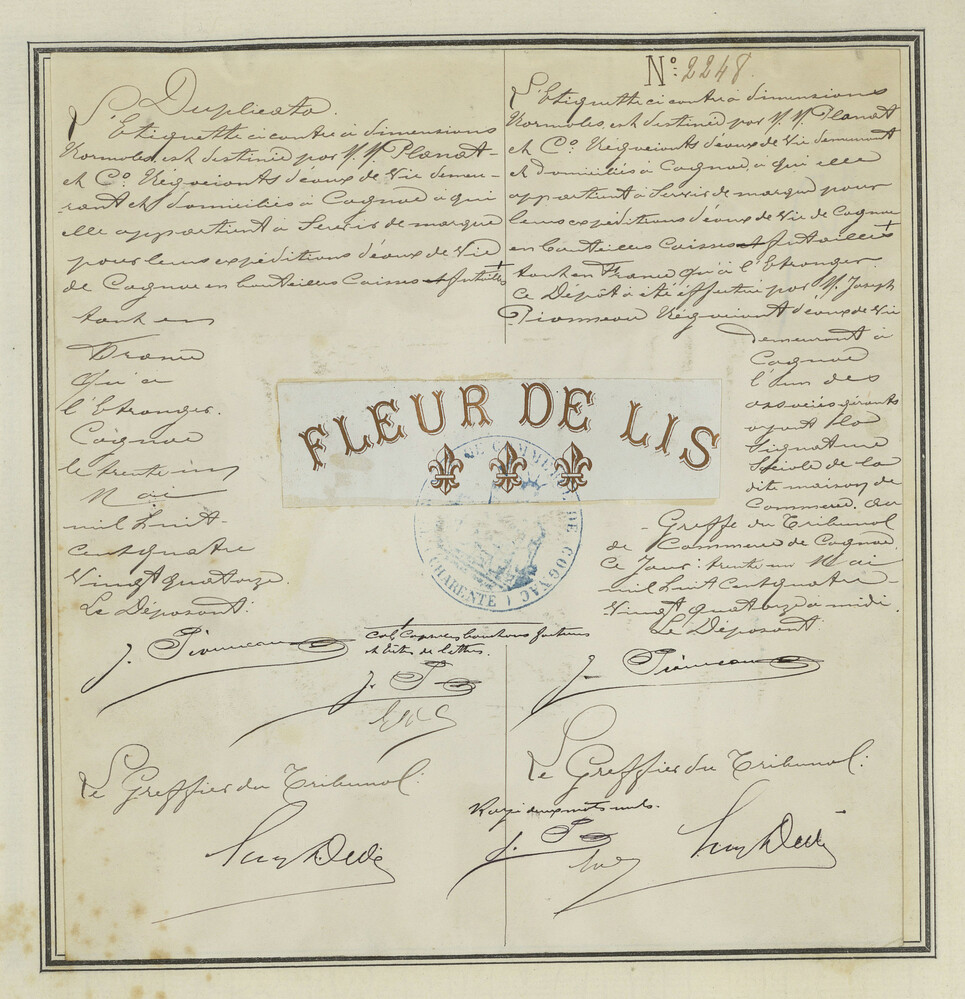 Duplicata.
L'Etiquette ci contre à dimensions
Normales, est destinée par M. M Planat
et Co. Négociants d'eaux de Vie demeu-
rant et domiciliés à Cognac à qui
elle appartient à Servir de marque
pour leurs expéditions d'eaux de Vie
de Cognac en bouteilles Caisses et futailles
tant en
France
qu'à
l'Etranger.
Cognac
le trente un
Mai
mil huit
cent quatre
Vingt quatorze.
Le Déposant:
J. Pionneau
Capsules bouchons futures
et Entes de lettres.
J. P
Le Greffier du Tribunal:
No: 2248.
L'Etiquette ci contre à dimensions
Normales, est destinée par M. M Planat
et Co. Négociants d'eaux de Vie demeurant
et domiciliés à Cognac, à qui elle
appartient à Servir de marque pour
leurs expéditions d'eaux de Vie de Cognac
en bouteilles Caisses et futailles
tant en France qu'à l'Etranger.
Ce Dépôt à été éffectué par M. Joseph
Pionneau Négociant d'eaux de Vie
demeurant à
Cognac
l'un des
associés gérants
ayant la
Signature
Sociale de la
dite maison de
Commerce. au
Greffe du Tribunal
de Commerce de Cognac.
Ce Jour: trente un Mai
mil huit Cent quatre
Vingt quatorze à midi.
Le Déposant:
J. Pionneau
Le Greffier du Tribunal:
Rayé deux mots nuls.
J. P
FLEUR DE LIS
DE COMMERCE DE COGNAC
(CHARENTE)